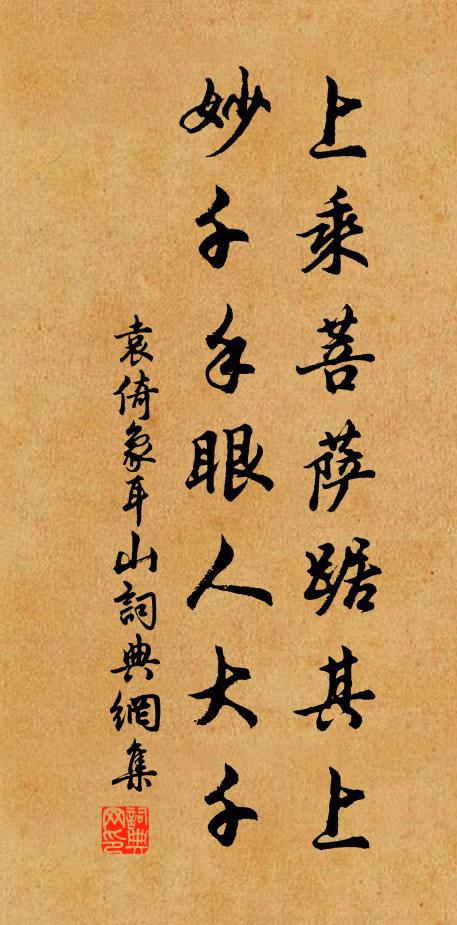 上乘菩萨踞其上
妙千手眼人大千
袁倚象耳山詞典網集
詞典网印